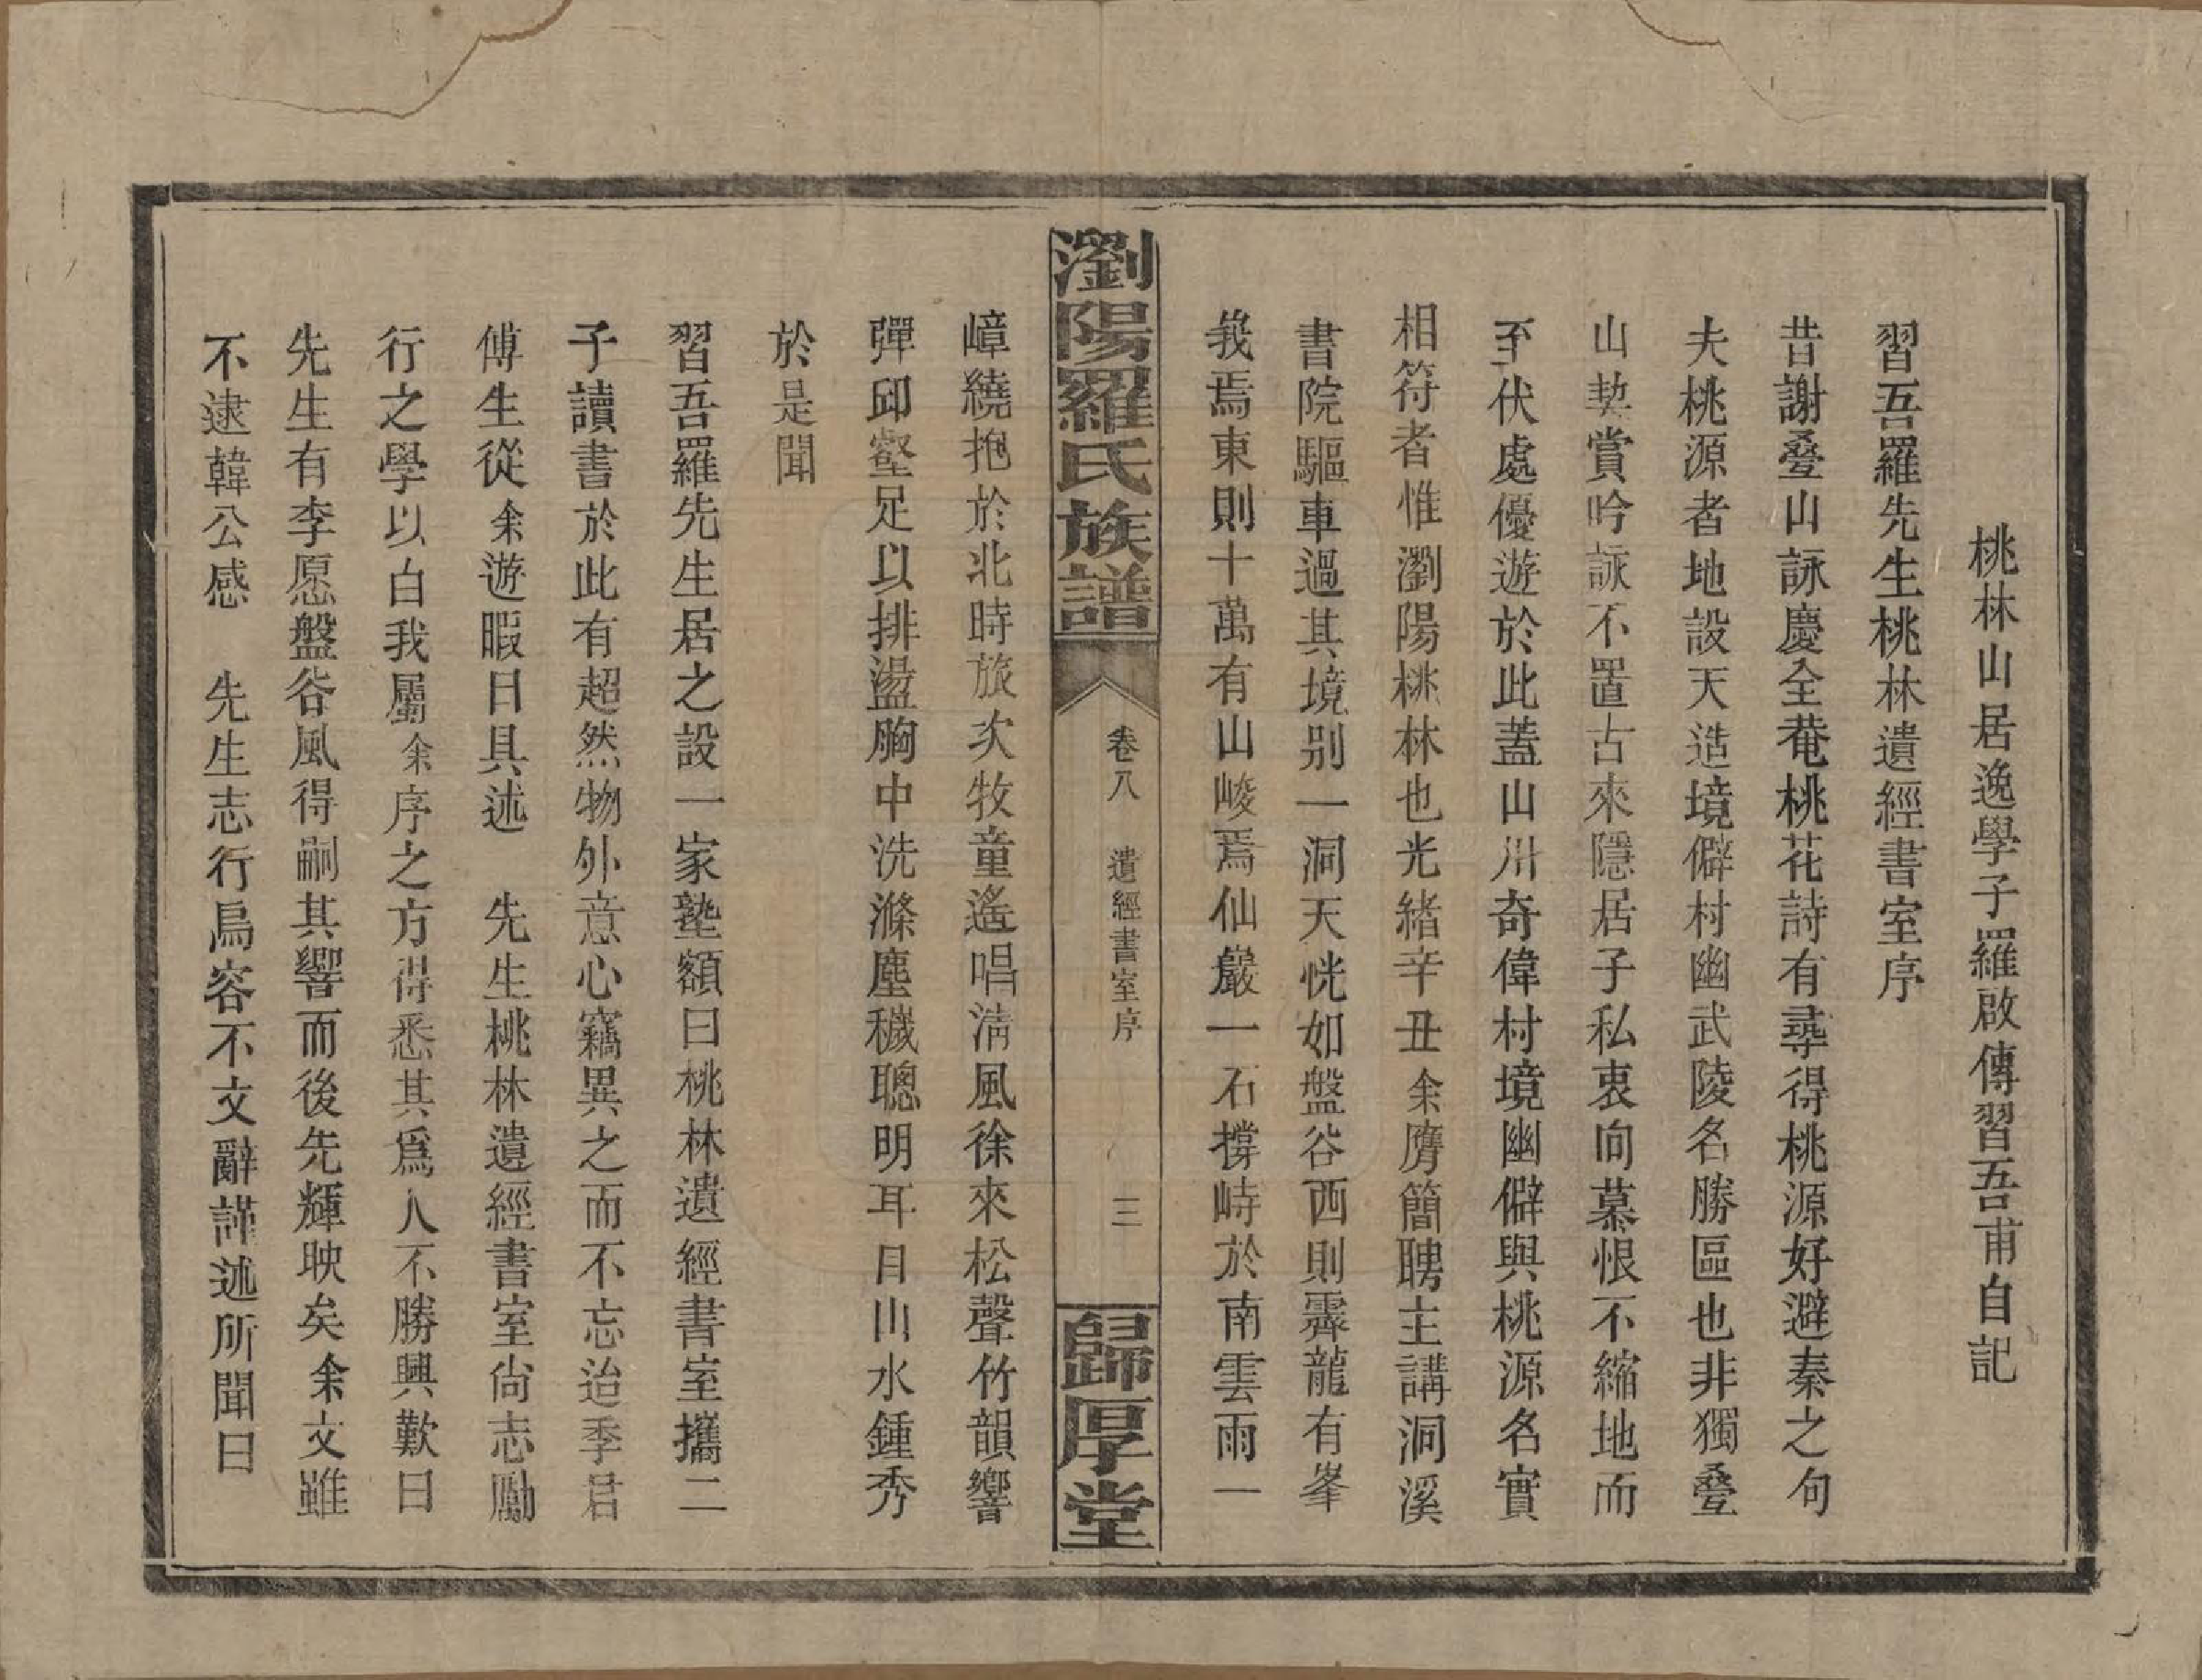 桃林山居逸學子羅啟傳習吾甫自記
習吾羅先生桃林遺經書室序
昔謝疊山詠慶全菴桃花詩有尋得桃源好避秦之句
夫桃源者地設天造境僻村幽武陵名勝區也非獨疊
山契賞吟詠不置古來隱居子私衷向慕恨不縮地而
至伏處優遊於此蓋山川奇偉村境幽僻與桃源名實
相符者惟瀏陽桃林也光緒辛丑余膺簡聘主講洞溪
書院驅車過其境別一洞天恍如盤谷西則霽龍有峯
峩焉東則十萬有山峻焉仙巖一石撐峙於南雲雨一
瀏陽羅氏族譜 卷八 遺經書室序 三 歸厚堂
嶂繞抱於北時旅次牧童遙唱清風徐來松聲竹韻響
彈邱壑足以排盪胸中洗滌塵穢聰明耳目山水鍾秀
於是聞
習吾羅先生居之設一家塾額曰桃林遺經書室攜二
子讀書於此有超然物外意心竊異之而不忘迨季君
傅生從余遊暇日具述 先生桃林遺經書室尚志勵
行之學以白我屬余序之方得悉其爲人不勝興歎曰
先生有李愿盤谷風得嗣其響而後先輝映矣余文雖
不逮韓公感 先生志行烏容不文辭謹述所聞曰